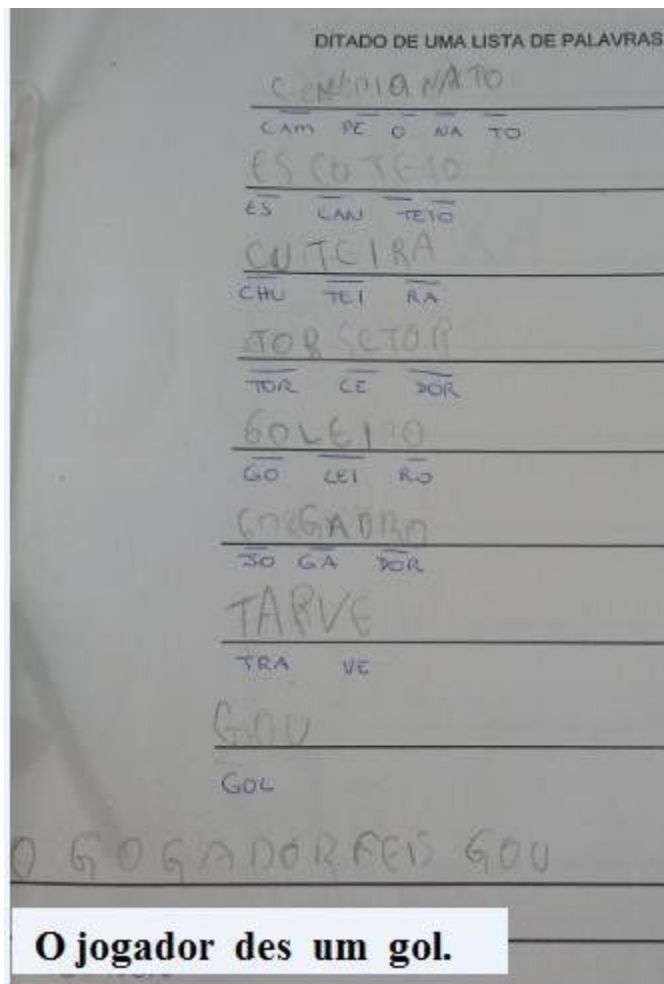 DITADO DE UMA LISTA DE PALAVRAS
CAM PE O NA TO
ES COTEIO
ES CAN TEIO
CUTEIRA
CHU TEI RA
TORSETOR
TOR CE DOR
GOLEIRO
GO LEI RO
JO GA DOR
TARVE
TRA VE
GOU
GOL
O GOGADOR FEIS GOU
O jogador des um gol.